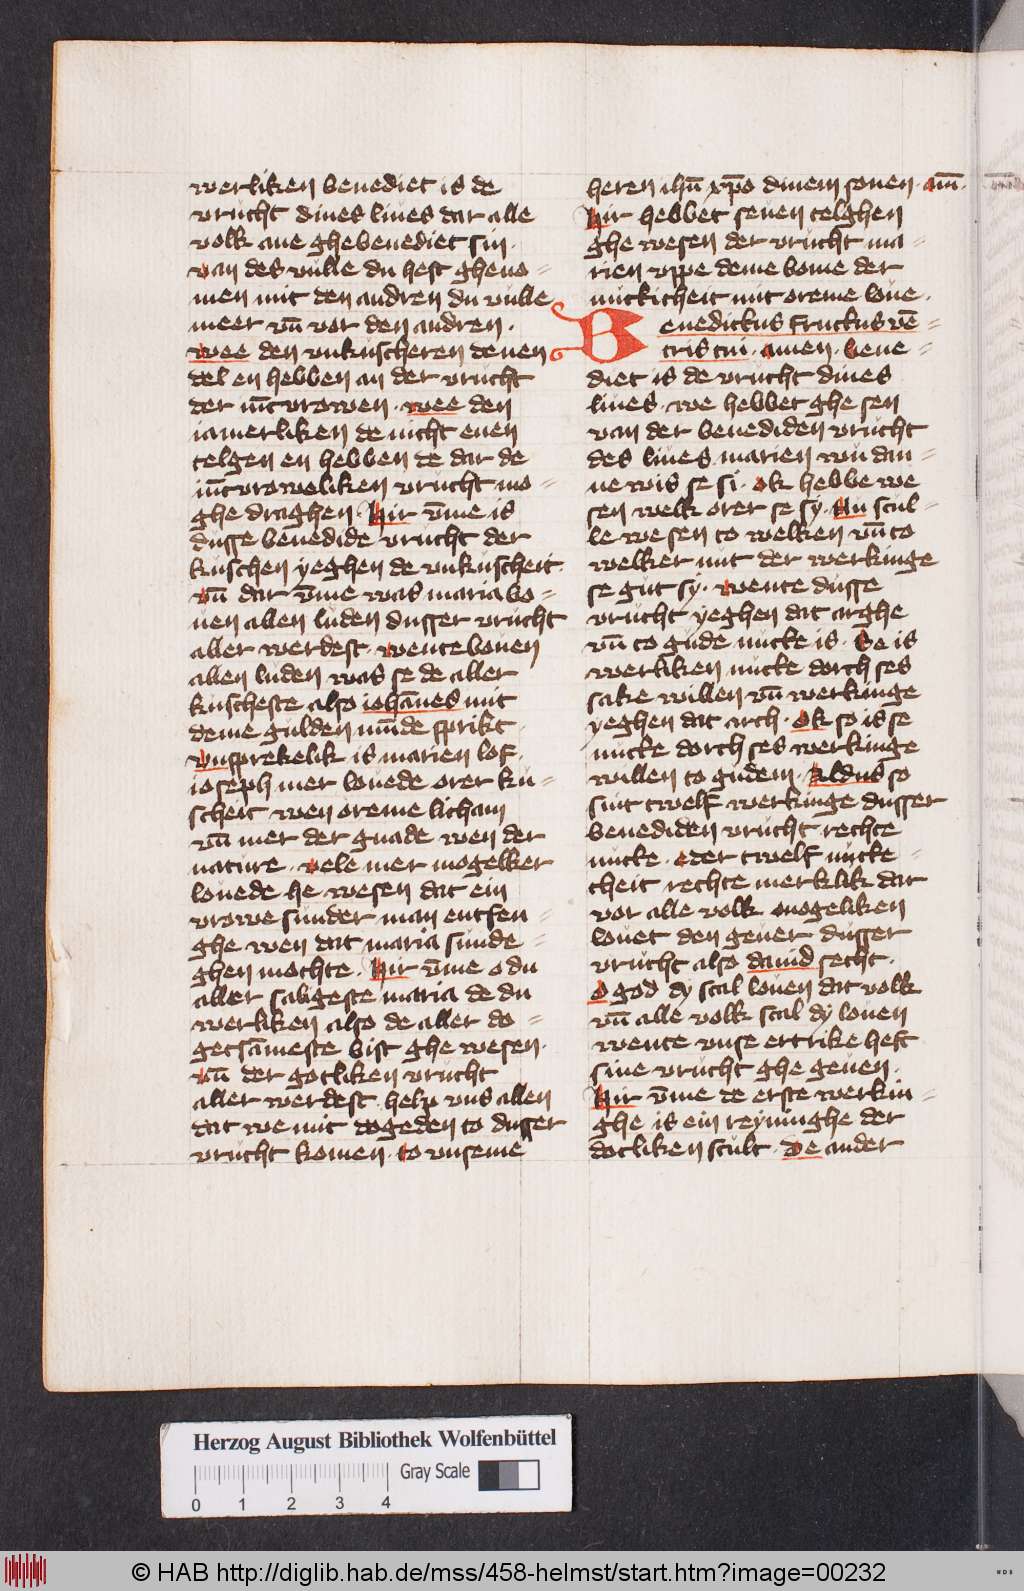 werliken benediet is de
vrucht dines liues dar alle
volk ane ghebenediet sin.
van des vulle du hest gheno=
men mit den andren du vulle
meer vn̄ vor den andren.
wee den vnkuscheren de nen
del en hebben an der vrucht
der iūcvrowen. wee den
iamerliken de nicht enen
telgen en hebben de dar de
iūcvroweliken vrucht mo=
ghe draghen. Hir v̄me is
dusse benedide vrucht der
kuschen yeghen de vnkuscheit.
vn̄ dar v̄me was maria bo=
uen allen luden dusser vrucht
aller werdest. wente bouen
allen luden was se de aller
kuscheste also iohānes mit
deme gulden mūde sprikt.
vnsprekelik is marien lof.
ioseph mer louede orer ku=
scheit wen oreme licham
vn̄ mer der gnade wen der
nature. vele mer mogelker
louede he wesen dat ein
vrowe sunder man entfen=
ghe wen dat maria sunde=
ghen mochte. Hir v̄me o du
aller saligeste maria de du
werliken also de aller do=
getsāmeste bist ghe wesen.
vn̄ der gotliken vrucht
aller werdest. help vns allen
dat we mit dogeden to dusser
vrucht komen. to vnseme
heren ihū xp̄o dinem sonen. am̄.
Hir hebbet seuen telghen
ghe wesen der vrucht ma=
rien vppe deme bome der
nutticheit mit oreme loue.
Benedictus fructus vē=
tris tui. amen. bene=
diet is de vrucht dines
liues. we hebbet ghe sen
van der benediden vrucht
des liues marien wu dan=
ne wis se si. ok hebbe we
sen welk orer se sy. Nu scul=
le we sen to welken vn̄ to
welker nut der werkinge
se gut sy. wente dusse
vrucht yeghen dat arghe
vn̄ to gude nutte is. Se is
werliken nutte dorch ses
sake willen vn̄ werkinge
yeghen dat arch. ok so is se
nutte dorch ses werkinge
willen to gudem. Aldus so
sint twelf werkinge dusser
benediden vrucht rechte
nutte. eder twelf nutte=
cheit rechte merklik dar
vor alle volk mogeliken
louet den geuer dusser
vrucht also dauid secht.
o god dy scal louen dat volk
vn̄ alle volk scal dy louen
wente vnse ertrike heft
sine vrucht ghe geuen.
Hir v̄me de erste werkin=
ghe is ein reyninghe der
dotliken scult. De ander
Herzog August Bibliothek Wolfenbüttel
Gray Scale
0 1 2 3 4
© HAB http://diglib.hab.de/mss/458-helmst/start.htm?image=00232